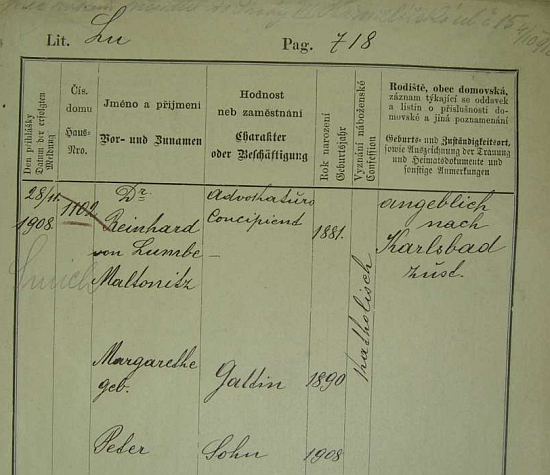 Lit. Lu Pag. 718
Den přihlášky
Datum der erfolgten Meldung
Čís. domu
Haus-Nro.
Jméno a příjmení
Vor- und Zunamen
Hodnost
neb zaměstnání
Charakter
oder Beschäftigung
Rok narození
Geburtsjahr
Vyznání náboženské
Confession
Rodiště, obec domovská,
záznam týkající se oddavek
a listin o příslušnosti do-
movské a jiná poznamenání
Geburts- und Zuständigkeitsort,
sowie Aufzeichnung der Trauung
und Heimatsdokumente und
sonstige Anmerkungen
28/11. 1908. 1102
Dr.
Reinhard
von Lumbe
Maltonitz
Advokaturs
Concipient
1881.
katholisch
angeblich
nach
Karlsbad
zust.
Margarethe
geb.
Gattin 1890
Peter Sohn 1908